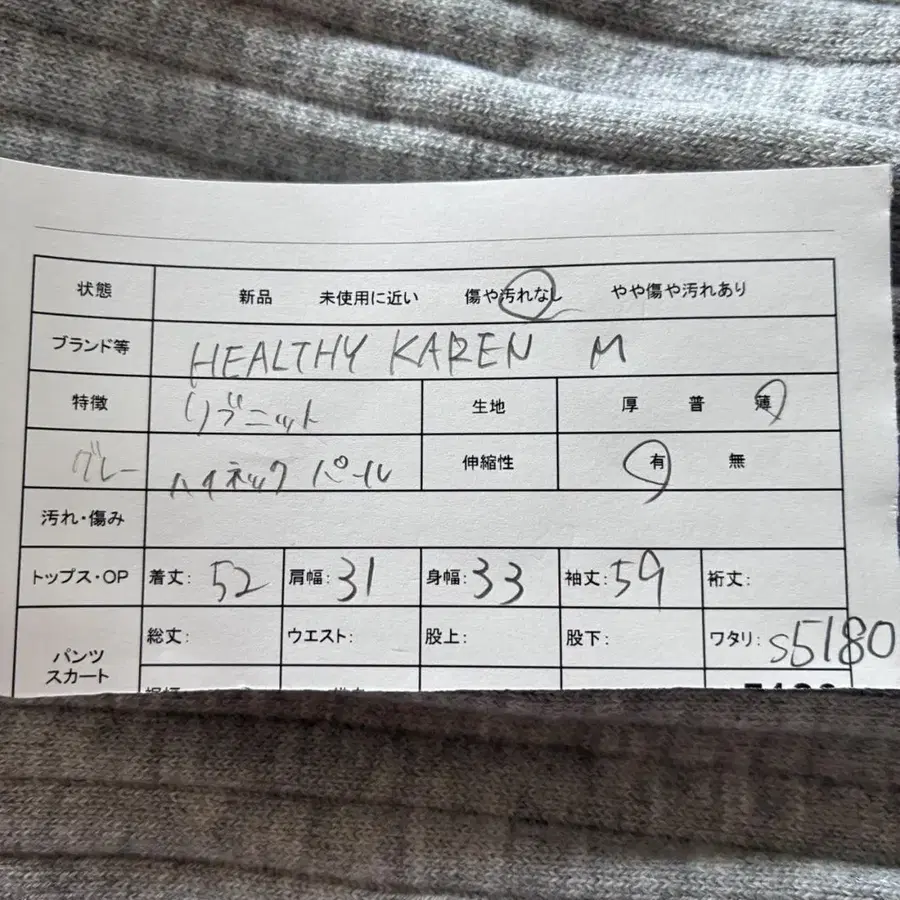 状態 新品 未使用に近い 傷や汚れなし やや傷や汚れあり
ブランド等 HEALTHY KAREN M
特徴 リブニット 生地 厚 普 薄
グレー ハイネック パール 伸縮性 有 無
汚れ・傷み
トップス・OP 着丈: 52 肩幅: 31 身幅: 33 袖丈: 59 裄丈:
パンツ スカート 総丈: ウエスト: 股上: 股下: ワタリ: S5180